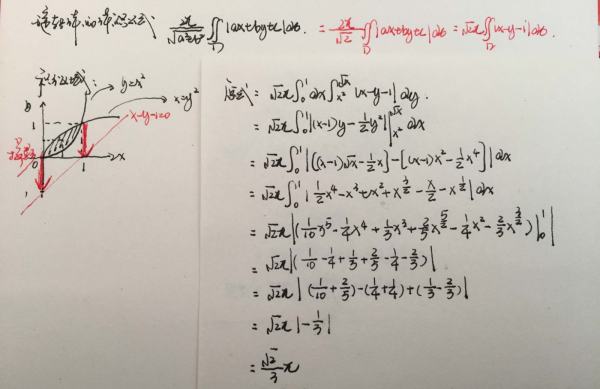 旋转体的体积公式 \frac{2\pi}{\sqrt{a^2+b^2}}\iint_D |ax+by+c|d\sigma = \frac{2\pi}{\sqrt{2}}\iint_D |ax+by+c|d\sigma = \sqrt{2}\pi\iint_D |x-y-1|d\sigma.
y=x^2
x=y^2
y
1
x-y-1=0
0
1
x
1
原式 = \sqrt{2}\pi\int_0^1 dx\int_{x^2}^{\sqrt{x}} |x-y-1|dy.
= \sqrt{2}\pi\int_0^1 |(x-1)y-\frac{1}{2}y^2| |_{x^2}^{\sqrt{x}} dx
= \sqrt{2}\pi\int_0^1 |[(x-1)\sqrt{x}-\frac{1}{2}x]-[(x-1)x^2-\frac{1}{2}x^4]|dx
= \sqrt{2}\pi\int_0^1 |\frac{1}{2}x^4-x^3+x^2+x^{\frac{3}{2}}-\frac{x}{2}-x^{\frac{1}{2}}|dx
= \sqrt{2}\pi|(\frac{1}{10}x^5-\frac{1}{4}x^4+\frac{1}{3}x^3+\frac{2}{5}x^{\frac{5}{2}}-\frac{1}{4}x^2-\frac{2}{3}x^{\frac{3}{2}})|_0^1|
= \sqrt{2}\pi|(\frac{1}{10}-\frac{1}{4}+\frac{1}{3}+\frac{2}{5}-\frac{1}{4}-\frac{2}{3})|
= \sqrt{2}\pi|(\frac{1}{10}+\frac{2}{5})-(\frac{1}{4}+\frac{1}{4})+(\frac{1}{3}-\frac{2}{3})|
= \sqrt{2}\pi|-\frac{1}{3}|
= \frac{\sqrt{2}}{3}\pi